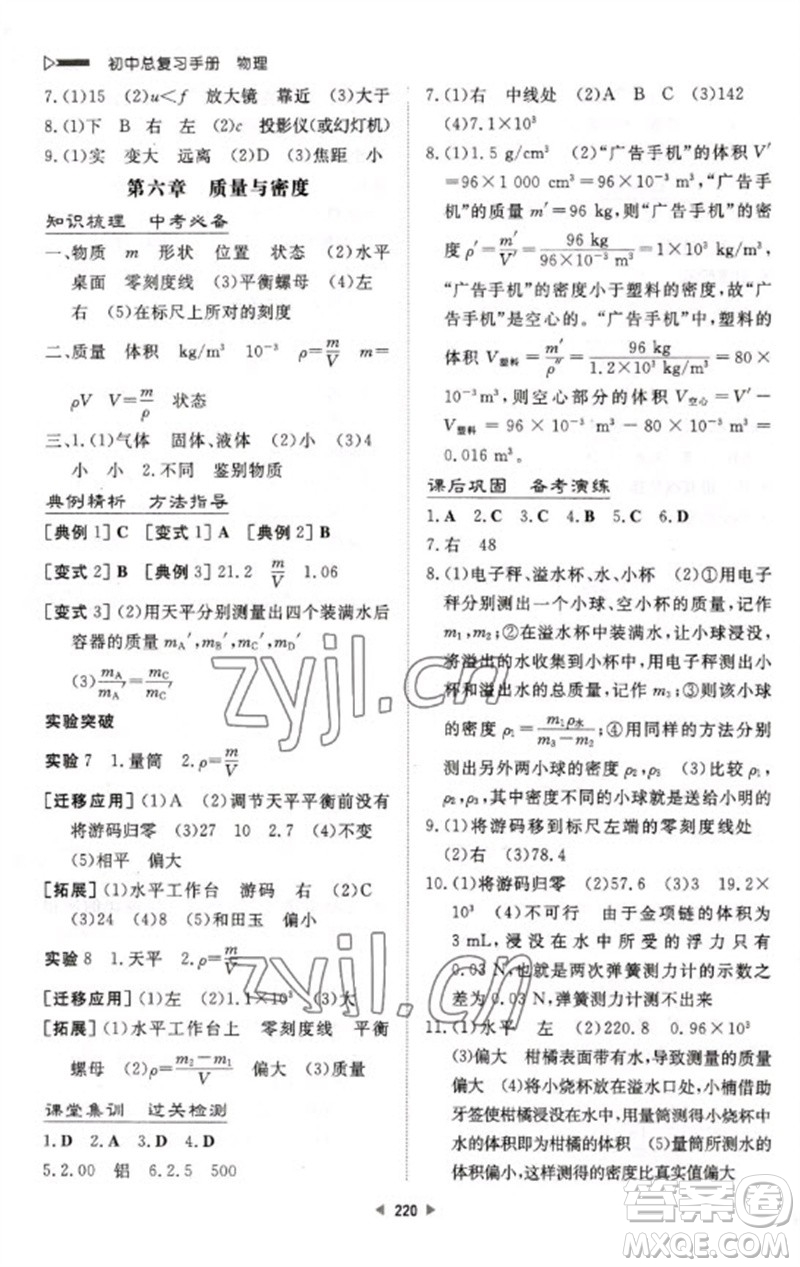 初中总复习手册　物理
7.(1)15　(2)u＜f　放大镜　靠近　(3)大于
8.(1)下　B　右　左　(2)c　投影仪(或幻灯机)
9.(1)实　变大　远离　(2)D　(3)焦距　小
第六章　质量与密度
知识梳理　中考必备
一、物质　m　形状　位置　状态　(2)水平
桌面　零刻度线　(3)平衡螺母　(4)左
右　(5)在标尺上所对的刻度
二、质量　体积　kg/m³　10⁻³　ρ=m/V　m=
ρV　V=m/ρ　状态
三、1.(1)气体　固体、液体　(2)小　(3)4
小　小　2.不同　鉴别物质
典例精析　方法指导
[典例1]C　[变式1]A　[典例2]B
[变式2]B　[典例3]21.2　m/V　1.06
[变式3](2)用天平分别测量出四个装满水后
容器的质量mA′,mB′,mC′,mD′
(3)mA/mA′=mC/mC′
实验突破
实验7　1.量筒　2.ρ=m/V
[迁移应用](1)A　(2)调节天平平衡前没有
将游码归零　(3)27　10　2.7　(4)不变
(5)相平　偏大
[拓展](1)水平工作台　游码　右　(2)C
(3)24　(4)8　(5)和田玉　偏小
实验8　1.天平　2.ρ=m/V
[迁移应用](1)左　(2)1.1×10³　(3)大
[拓展](1)水平工作台上　零刻度线　平衡
螺母　(2)ρ=(m₂－m₁)/V　偏大
课堂集训　过关检测
1.D　2.D　3.D　4.D
5.2.00　铝　6.2.5　500
7.(1)右　中线处　(2)A　B　C　(3)142
(4)7.1×10³
8.(1)1.5 g/cm³　(2)“广告手机”的体积V′
=96×1 000 cm³=96×10⁻³ m³，“广告手
机”的质量m′=96 kg，则“广告手机”的密
度ρ′=m′/V′=96 kg/(96×10⁻³ m³)=1×10³ kg/m³，
“广告手机”的密度小于塑料的密度，故“广
告手机”是空心的。“广告手机”中，塑料的
体积V塑料=m′/ρ″=96 kg/(1.2×10³ kg/m³)=80×
10⁻³m³，则空心部分的体积V空心=V′－
V塑料=96×10⁻³ m³－80×10⁻³ m³=
0.016 m³。
课后巩固　备考演练
1.A　2.C　3.C　4.B　5.C　6.D
7.右　48
8.(1)电子秤、溢水杯、水、小杯　(2)①用电子
秤分别测出一个小球、空小杯的质量，记作
m₁,m₂;②在溢水杯中装满水,让小球浸没，
将溢出的水收集到小杯中,用电子秤测出小
杯和溢出水的总质量，记作m₃;③则该小球
的密度ρ₁=m₁ρ水/(m₃－m₂);④用同样的方法分别
测出另外两个小球的密度ρ₂,ρ₃　(3)比较ρ₁、
ρ₂、ρ₃,其中密度不同的小球就是送给小明的
9.(1)将游码移到标尺左端的零刻度线处
(2)右　(3)78.4
10.(1)将游码归零　(2)57.6　(3)3　19.2×
10³　(4)不可行　由于金项链的体积为
3 mL，浸没在水中所受的浮力只有
0.03 N，也就是两次弹簧测力计的示数之
差为0.03 N,弹簧测力计测不出来
11.(1)水平　左　(2)220.8　0.96×10³
(3)偏大　柑橘表面带有水,导致测量的质量
偏大　(4)将小烧杯放在溢水口处,小华借助
牙签使柑橘浸没在水中,溢到小烧杯中
水的体积即为柑橘的体积　(5)量筒所测水的体
积偏小,这样测得的密度比真实值偏大
220
zyjl.cn
zyjl.cn
答案卷